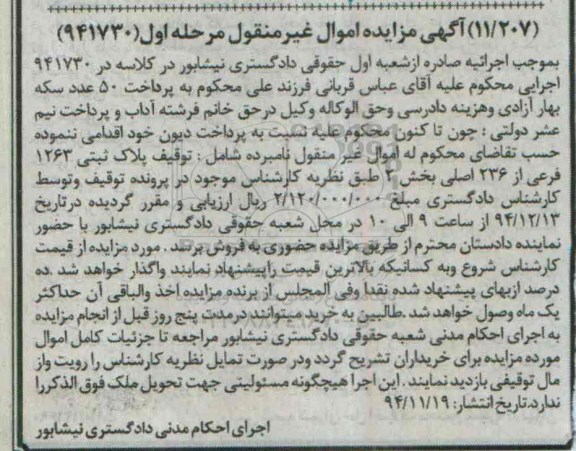 (۱۱/۲۰۷) آگهی مزایده اموال غیر منقول مرحله اول (۹۴۱۷۳۰)
بموجب اجرائیه صادره ازشعبه اول حقوقی دادگستری نیشابور در کلاسه در ۹۴۱۷۳۰
اجرایی محکوم علیه آقای عباس قربانی فرزند علی محکوم به پرداخت ۵۰ عدد سکه
بهار آزادی وهزینه دادرسی وحق الوکاله وکیل درحق خانم فرشته آداب و پرداخت نیم
عشر دولتی : چون تا کنون محکوم علیه نسبت به پرداخت دیون خود اقدامی ننموده
حسب تقاضای محکوم له اموال غیر منقول نامبرده شامل : توقیف پلاک ثبتی ۱۲۶۳
فرعی از ۲۳۶ اصلی بخش ۲ طبق نظریه کارشناس موجود در پرونده توقیف وتوسط
کارشناس دادگستری مبلغ ۲/۱۲۰/۰۰۰/۰۰۰ ریال ارزیابی و مقرر گردیده درتاریخ
۹۴/۱۲/۱۳ از ساعت ۹ الی ۱۰ در محل شعبه حقوقی دادگستری نیشابور با حضور
نماینده دادستان محترم از طریق مزایده حضوری به فروش برسد . مورد مزایده از قیمت
کارشناس شروع وبه کسانیکه بالاترین قیمت راپیشنهاد نمایند واگذار خواهد شد .ده
درصد ازبهای پیشنهاد شده نقدا وفی المجلس از برنده مزایده اخذ والباقی آن حداکثر
یک ماه وصول خواهد شد .طالبین به خرید میتوانند درمدت پنج روز قبل از انجام مزایده
به اجرای احکام مدنی شعبه حقوقی دادگستری نیشابور مراجعه تا جزئیات کامل اموال
مورده مزایده برای خریداران تشریح گردد ودر صورت تمایل نظریه کارشناس را رویت واز
مال توقیفی بازدید نمایند . این اجرا هیچگونه مسئولیتی جهت تحویل ملک فوق الذکررا
ندارد.تاریخ انتشار: ۹۴/۱۱/۱۹
اجرای احکام مدنی دادگستری نیشابور